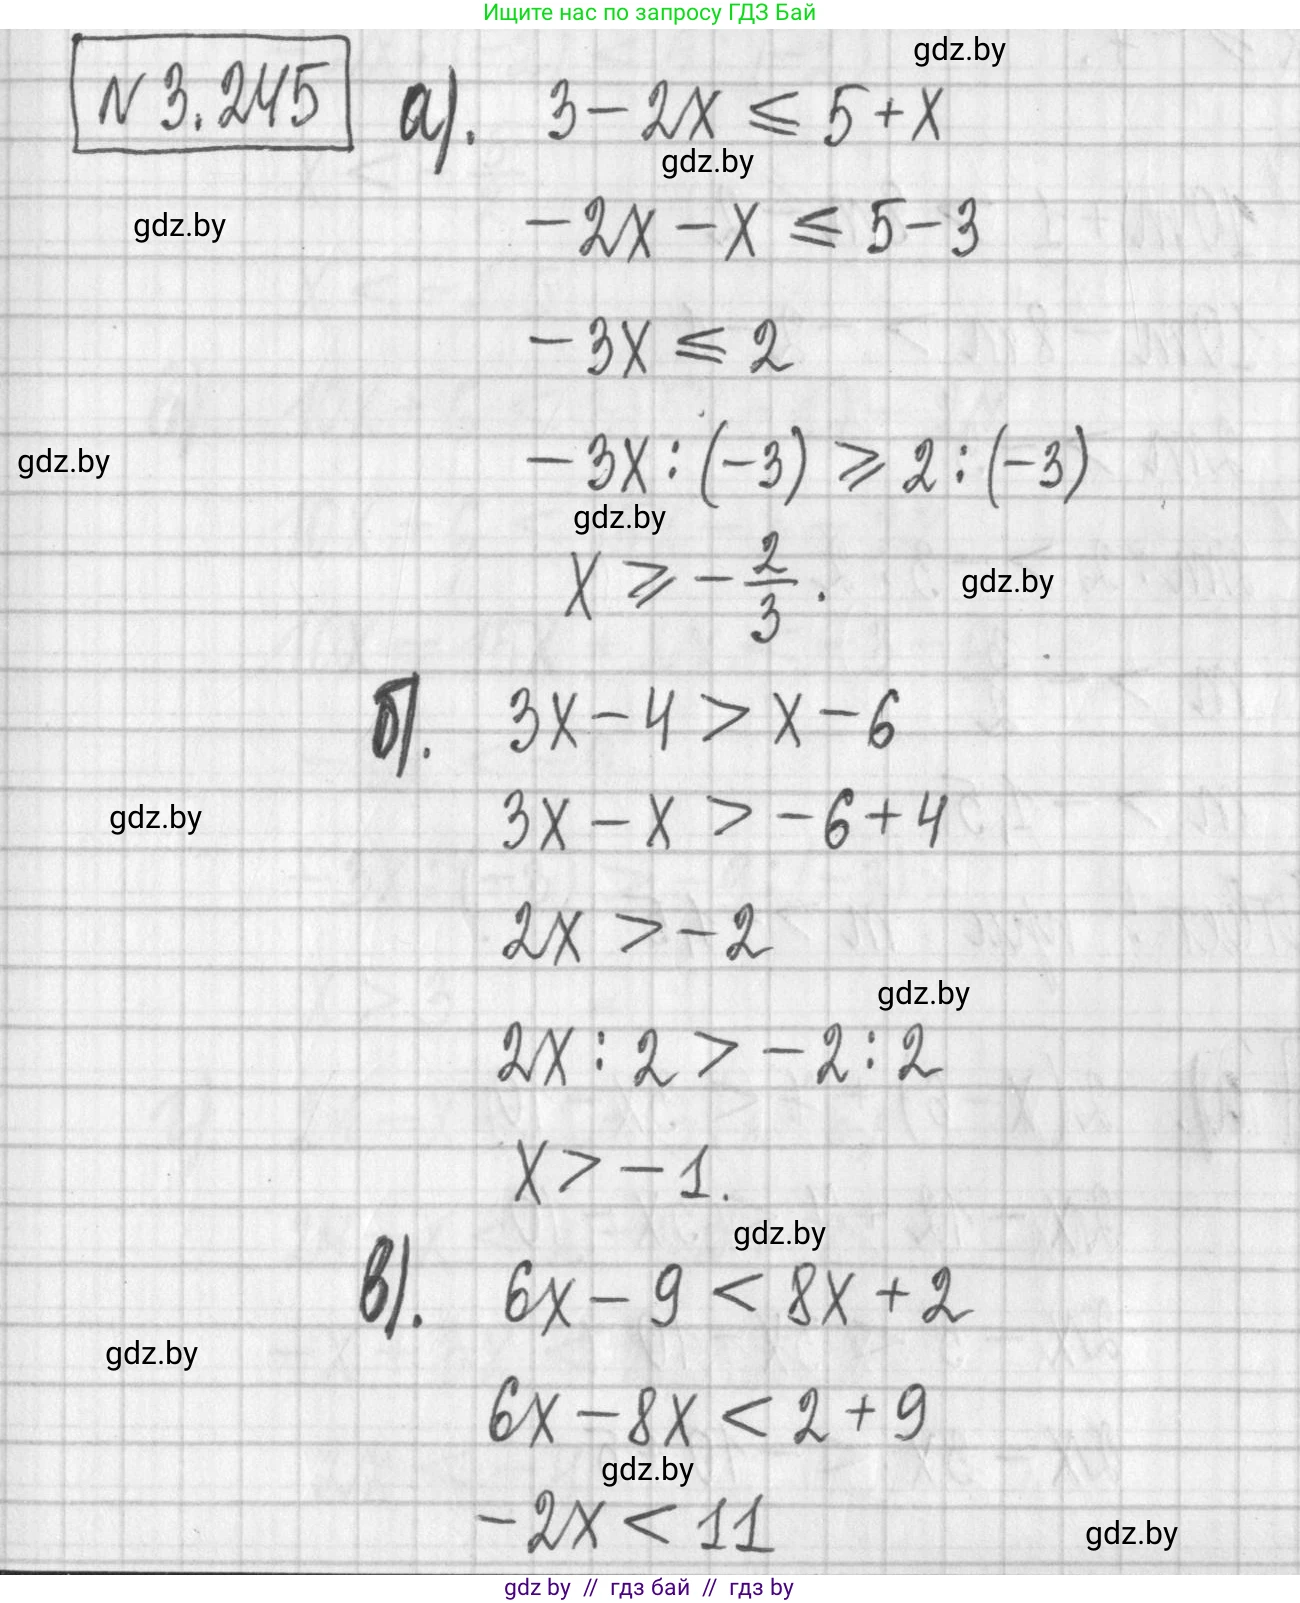 Ищите нас по запросу ГДЗ Бай
gdz.by
№ 3.245 а). 3 - 2x ⩽ 5 + x
gdz.by
gdz.by
-2x - x ⩽ 5 - 3
-3x ⩽ 2
gdz.by
-3x : (-3) ⩾ 2 : (-3)
gdz.by
x ⩾ -2/3.
gdz.by
б). 3x - 4 > x - 6
gdz.by
3x - x > -6 + 4
2x > -2
gdz.by
2x : 2 > -2 : 2
x > -1.
gdz.by
в). 6x - 9 < 8x + 2
gdz.by
6x - 8x < 2 + 9
gdz.by
-2x < 11
gdz.by
gdz by // гдз бай // гдз by